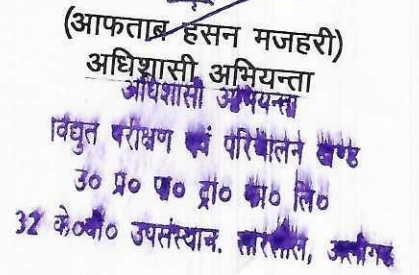 (आफताब हसन मजहरी)
अधिशासी अभियन्ता
अधिशासी अभियन्ता
विद्युत परीक्षण एवं परिचालन खण्ड
उ० प्र० पा० ट्रां० का० लि०
32 के०वी० उपसंस्थान. सारसौल, अलीगढ़